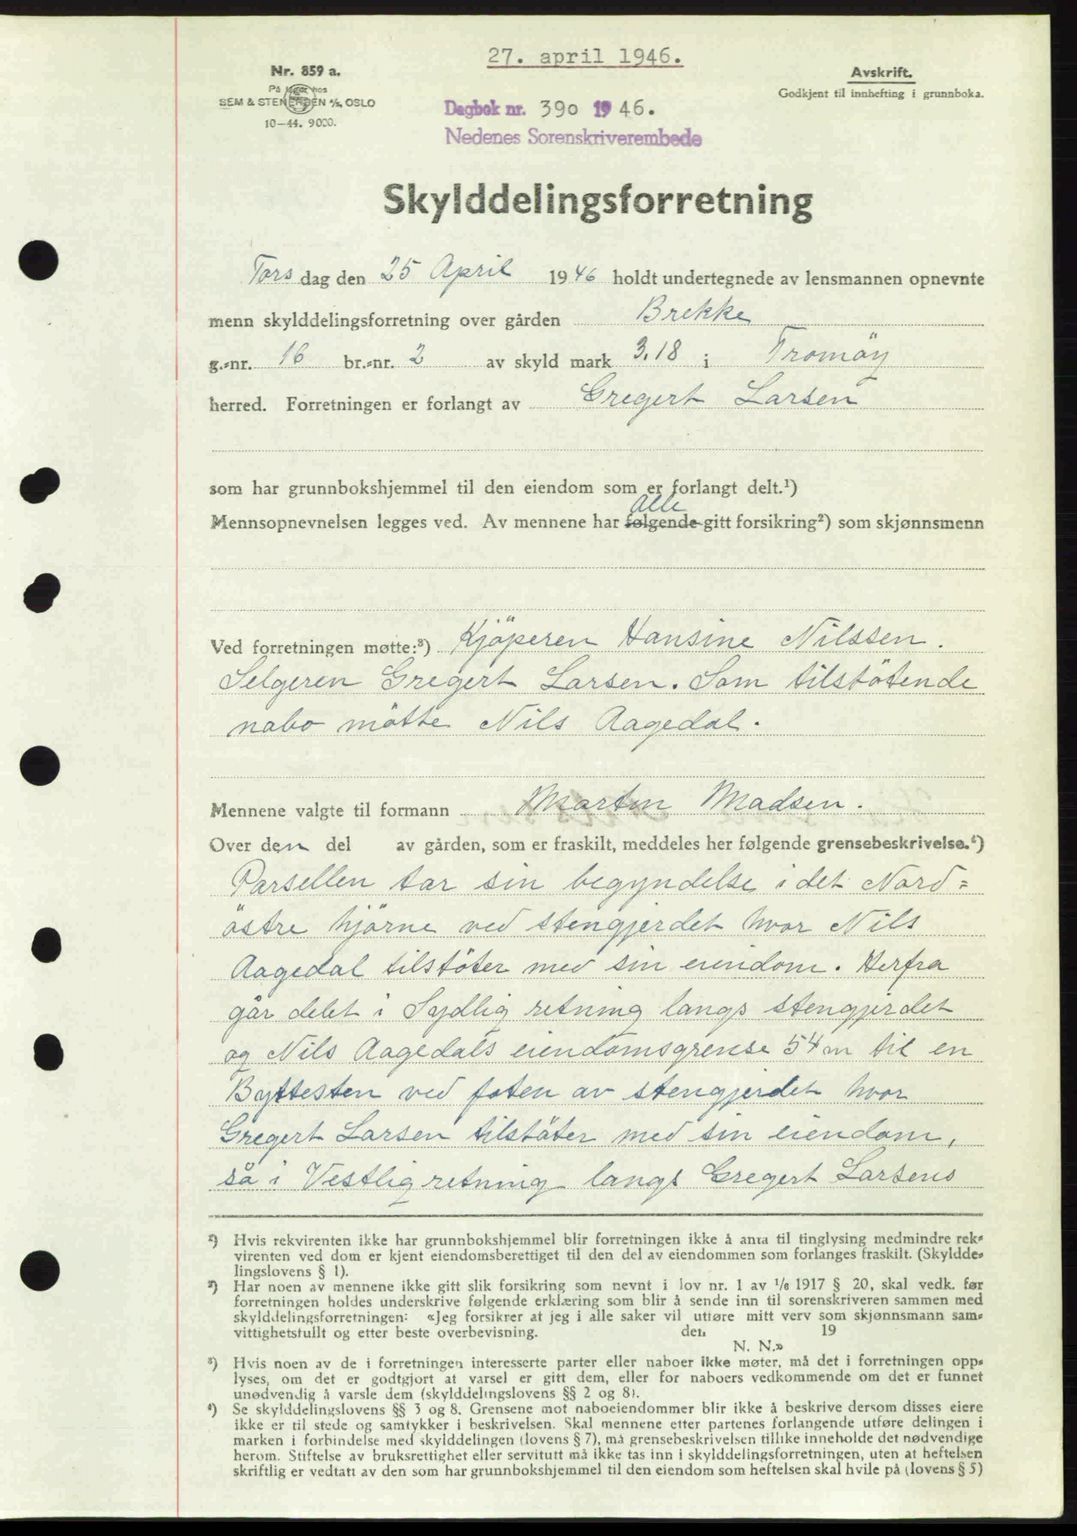 27. april 1946.
Nr. 859 a.
På lager hos
SEM & STENERSEN A/S, OSLO
10-44. 9000.
Avskrift.
Godkjent til innhefting i grunnboka.
Dagbok nr. 390 1946.
Nedenes Sorenskriverembede
Skylddelingsforretning
Torsdag den 25 April 1946 holdt undertegnede av lensmannen opnevnte
menn skylddelingsforretning over gården Brekke
g.-nr. 16 br.-nr. 2 av skyld mark 3.18 i Tromöy
herred. Forretningen er forlangt av Gregert Larsen
som har grunnbokshjemmel til den eiendom som er forlangt delt.¹)
alle
Mennsopnevnelsen legges ved. Av mennene har følgende gitt forsikring²) som skjønnsmenn
Ved forretningen møtte:³) Kjöperen Hansine Nilssen.
Selgeren Gregert Larsen. Som tilstötende
nabo mötte Nils Aagedal.
Mennene valgte til formann Martin Madsen.
Over den del av gården, som er fraskilt, meddeles her følgende grensebeskrivelse.⁴)
Parsellen tar sin begyndelse i det Nord=
östre hjörne ved stengjerdet hvor Nils
Aagedal tilstöter med sin eiendom. Herfra
går delet i Sydlig retning langs stengjerdet
og Nils Aagedals eiendomsgrense 54 m til en
Byttesten ved foten av stengjerdet hvor
Gregert Larsen tilstöter med sin eiendom,
så i Vestlig retning langs Gregert Larsens
¹) Hvis rekvirenten ikke har grunnbokshjemmel blir forretningen ikke å anta til tinglysing medmindre rek-
virenten ved dom er kjent eiendomsberettiget til den del av eiendommen som forlanges fraskilt. (Skyldde-
lingslovens § 1).
²) Har noen av mennene ikke gitt slik forsikring som nevnt i lov nr. 1 av 1/6 1917 § 20, skal vedk. før
forretningen holdes underskrive følgende erklæring som blir å sende inn til sorenskriveren sammen med
skylddelingsforretningen: «Jeg forsikrer at jeg i alle saker vil utføre mitt verv som skjønnsmann sam-
vittighetsfullt og etter beste overbevisning. den 19
N. N.»
³) Hvis noen av de i forretningen interesserte parter eller naboer ikke møter, må det i forretningen opp-
lyses, om det er godtgjort at varsel er gitt dem, eller for naboers vedkommende om det er funnet
unødvendig å varsle dem (skylddelingslovens §§ 2 og 8).
⁴) Se skylddelingslovens §§ 3 og 8. Grensene mot naboeiendommer blir ikke å beskrive dersom disses eiere
ikke er til stede og samtykker i beskrivelsen. Skal mennene etter partenes forlangende utføre delingen i
marken i forbindelse med skylddelingen (lovens § 7), må grensebeskrivelsen tillike inneholde det nødvendige
herom. Stiftelse av bruksrettighet eller servitutt må ikke tas inn i skylddelingsforretningen, uten at heftelsen
skriftlig er vedtatt av den som har grunnbokshjemmel til den eiendom som heftelsen skal hvile på (lovens § 5)